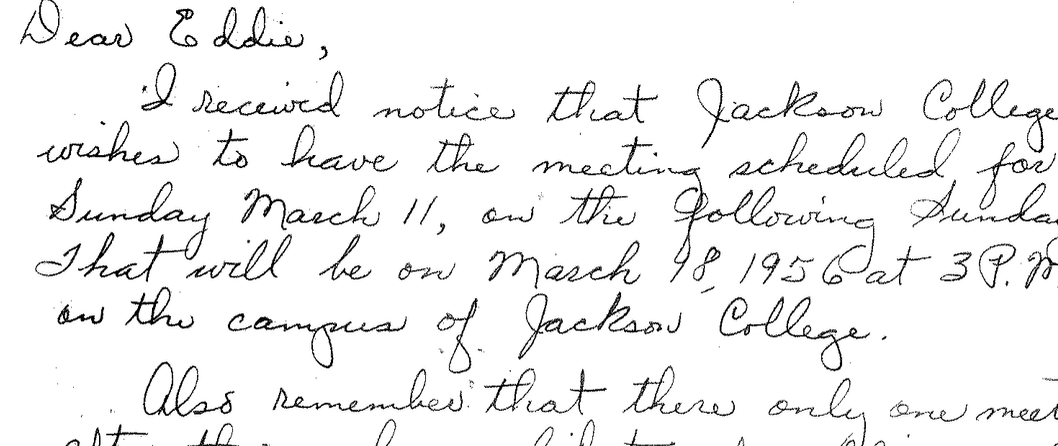 Dear Eddie,
I received notice that Jackson College
wishes to have the meeting scheduled for
Sunday March 11, on the following Sunday
That will be on March 18, 1956 at 3 P.M.
on the campus of Jackson College.
Also remember that there only one meet